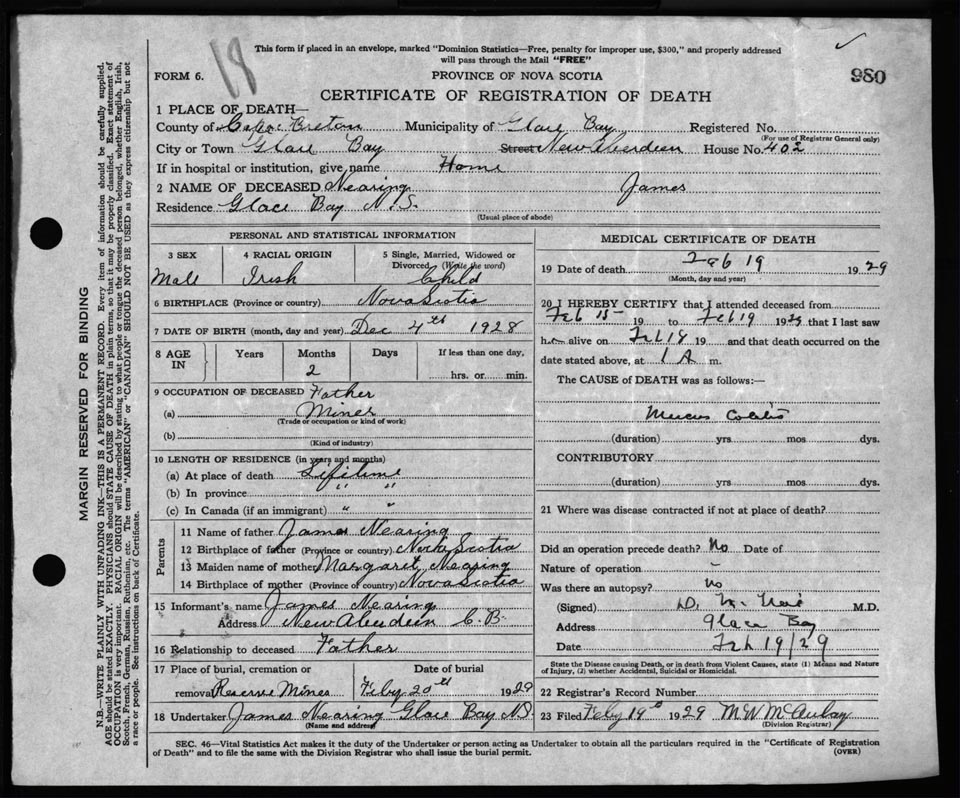 18
This form if placed in an envelope, marked "Dominion Statistics—Free, penalty for improper use, $300," and properly addressed
will pass through the Mail "FREE"
980
FORM 6.
PROVINCE OF NOVA SCOTIA
CERTIFICATE OF REGISTRATION OF DEATH
1 PLACE OF DEATH—
County of Cape Breton Municipality of Glace Bay Registered No.
(For use of Registrar General only)
City or Town Glace Bay Street New Aberdeen House No. 402
If in hospital or institution, give name Home
2 NAME OF DECEASED Nearing James
Residence Glace Bay N.S.
(Usual place of abode)
PERSONAL AND STATISTICAL INFORMATION
3 SEX 4 RACIAL ORIGIN 5 Single, Married, Widowed or
Divorced, (Write the word)
Male Irish Child
6 BIRTHPLACE (Province or country) Nova Scotia
7 DATE OF BIRTH (month, day and year) Dec 4th 1928
8 AGE IN Years Months Days If less than one day,
2 hrs. or min.
9 OCCUPATION OF DECEASED Father
(a) Miner
(Trade or occupation or kind of work)
(b)
(Kind of industry)
10 LENGTH OF RESIDENCE (in years and months)
(a) At place of death Lifetime
(b) In province " "
(c) In Canada (if an immigrant) " "
Parents
11 Name of father James Nearing
12 Birthplace of father (Province or country) Nova Scotia
13 Maiden name of mother Margaret Nearing
14 Birthplace of mother (Province of country) Nova Scotia
15 Informant's name James Nearing
Address New Aberdeen C.B.
16 Relationship to deceased Father
17 Place of burial, cremation or Date of burial
removal Reserve Mines Feby 20th 1929
18 Undertaker James Nearing Glace Bay NS
(Name and address)
MEDICAL CERTIFICATE OF DEATH
19 Date of death Feb 19 1929
(Month, day and year)
20 I HEREBY CERTIFY that I attended deceased from
Feb 15 19 to Feb 19 1929 that I last saw
h alive on Feb 18 19 and that death occurred on the
date stated above, at 1 A m.
The CAUSE OF DEATH was as follows:—
Mucus Colitis
(duration) yrs mos dys.
CONTRIBUTORY
(duration) yrs mos dys.
21 Where was disease contracted if not at place of death?
Did an operation precede death? No Date of
Nature of operation -
Was there an autopsy? No
(Signed) D. M. M.D.
Address Glace Bay
Date Feb 19/29
State the Disease causing Death, or in death from Violent Causes, state (1) Means and Nature
of Injury, (2) whether Accidental, Suicidal or Homicidal.
22 Registrar's Record Number
23 Filed Feby 19th 1929 M W McAulay
(Division Registrar)
SEC. 46—Vital Statistics Act makes it the duty of the Undertaker or person acting as Undertaker to obtain all the particulars required in the "Certificate of Registration
of Death" and to file the same with the Division Registrar who shall issue the burial permit. (OVER)
MARGIN RESERVED FOR BINDING
N.B.—WRITE PLAINLY WITH UNFADING INK—THIS IS A PERMANENT RECORD. Every item of information should be carefully supplied.
AGE should be stated EXACTLY. PHYSICIANS should STATE CAUSE OF DEATH in plain terms, so that it may be properly classified. Exact statement of
OCCUPATION is very important. RACIAL ORIGIN will be described by stating to what people or tongue the deceased person belonged, whether English, Irish,
Scotch, French, German, Russian, Ruthenian, etc. The terms "AMERICAN" or "CANADIAN" SHOULD NOT BE USED as they express citizenship but not
a race or people. See instructions on back of Certificate.